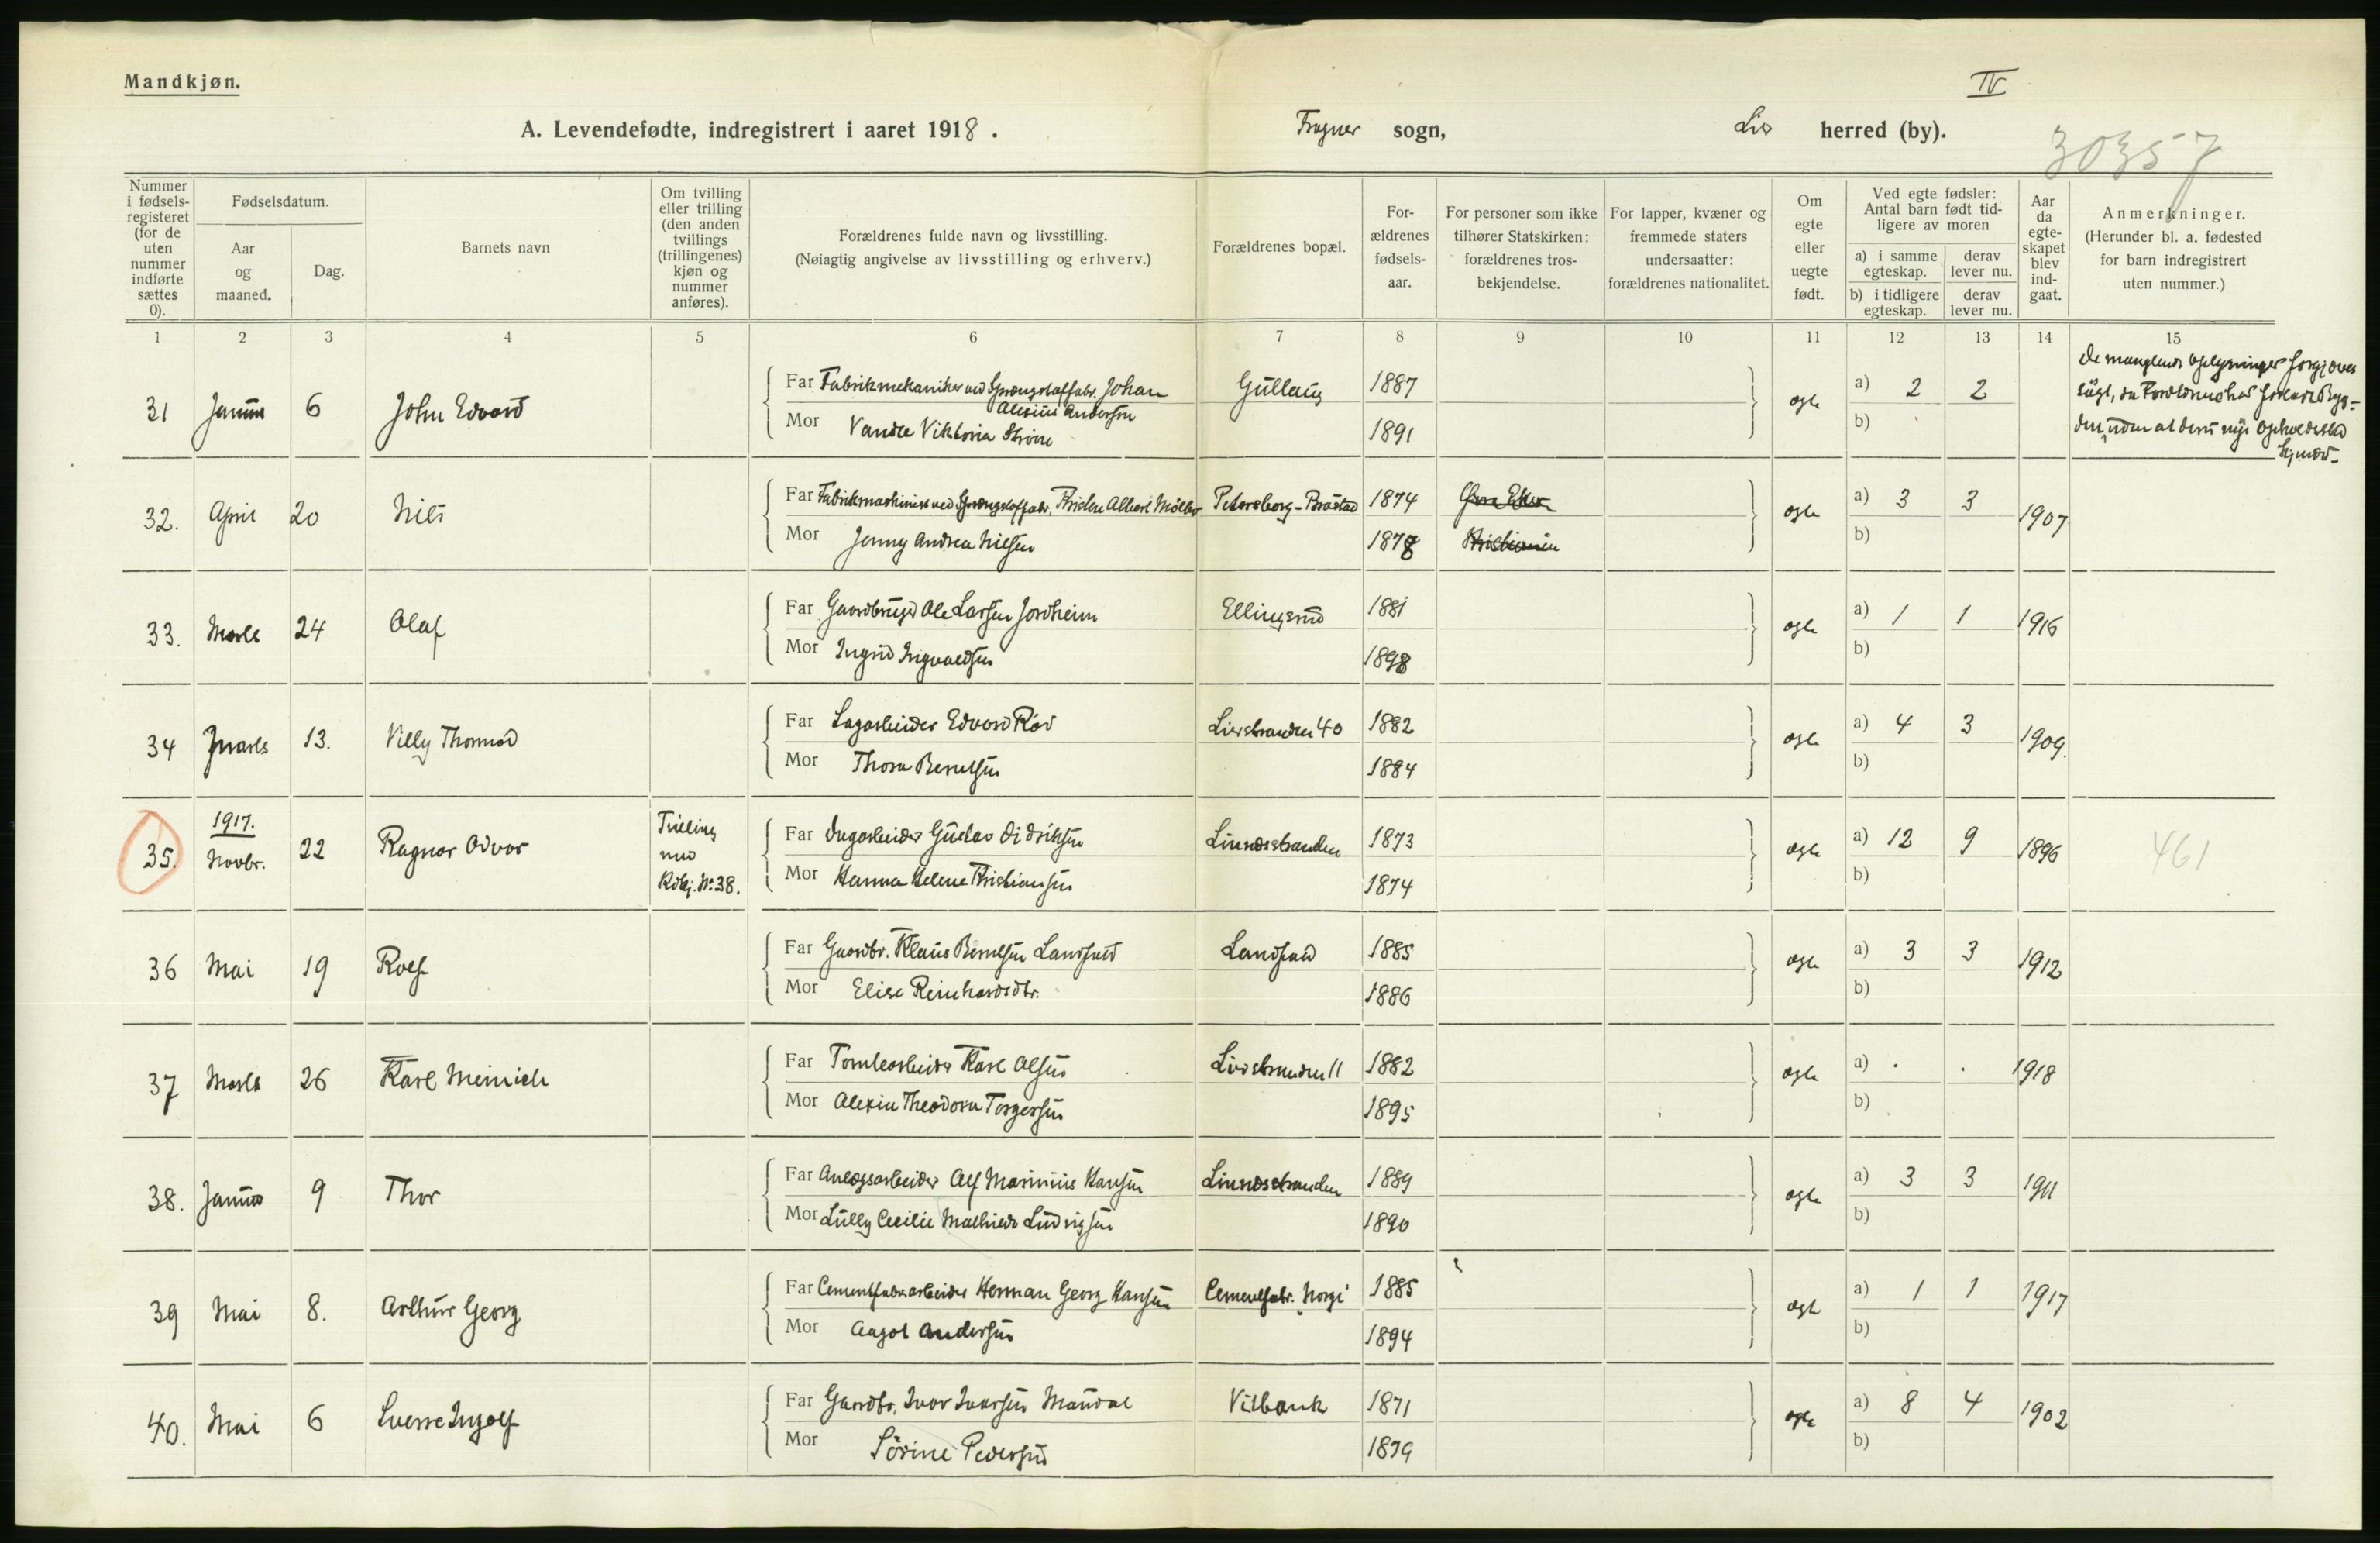 Mandkjøn.
IV
A. Levendefødte, indregistrert i aaret 1918. Frogner sogn, Lier herred (by).
30357
Nummer i fødselsregisteret (for de uten nummer indførte sættes 0).
Fødselsdatum.
Aar og maaned.
Dag.
Barnets navn
Om tvilling eller trilling (den anden tvillings (trillingenes) kjøn og nummer anføres).
Forældrenes fulde navn og livsstilling.
(Nøiagtig angivelse av livsstilling og erhverv.)
Forældrenes bopæl.
Forældrenes fødselsaar.
For personer som ikke tilhører Statskirken: forældrenes trosbekjendelse.
For lapper, kvæner og fremmede staters undersaatter: forældrenes nationalitet.
Om egte eller uegte født.
Ved egte fødsler: Antal barn født tidligere av moren
a) i samme egteskap. derav lever nu.
b) i tidligere egteskap. derav lever nu.
Aar da egteskapet blev indgaat.
Anmerkninger.
(Herunder bl. a. fødested for barn indregistrert uten nummer.)
1 2 3 4 5 6 7 8 9 10 11 12 13 14 15
31 Januar 6 John Edvard Far Fabrikmekaniker ved Sprængstoffabr. Johan Alexius Andersen Gullaug 1887 egte a) 2 2
Mor Vanda Viktoria 1891 b)
32. April 20 Nils Far Fabrikmaskinist ved Sprængstoffabr. Kristen Albert Møller Petersborg - Bråstad 1874 Øvre Eker egte a) 3 3 1907
Mor Jenny Andrea Nilsen 1878 Kristiania b)
33. Marts 24 Olaf Far Gaardbruger Ole Larsen Jordheim Ellingsrud 1881 egte a) 1 1 1916
Mor Ingrid Ingvaldsen 1898 b)
34 Marts 13. Villy Thormod Far Sagarbeider Edvard Röd Lierstranden 40 1882 egte a) 4 3 1909.
Mor Thora Berntsen 1884 b)
35. 1917. Novbr. 22 Ragnar Odvar Tvilling med Kvkj. No 38. Far Sagarbeider Gustav Didriksen Linnesstranden 1873 egte a) 12 9 1896 461
Mor Hanna Helene Kristiansen 1874 b)
36 Mai 19 Rolf Far Gaardbr. Klaus Berntsen Landfald Landfald 1885 egte a) 3 3 1912
Mor Elise Reinhardsdtr. 1886 b)
37 Marts 26 Karl Meinich Far Tomtearbeider Karl Olsen Lierstranden 11 1882 egte a) . . 1918
Mor Alexia Theodora Torgersen 1895 b)
38. Januar 9 Thor Far Anlægsarbeider Alf Marinius Hansen Linnesstranden 1889 egte a) 3 3 1911
Mor Lully Cecilie Mathilde Ludvigsen 1890 b)
39 Mai 8. Arthur Georg Far Cementfabrarbeider Herman Georg Hansen Cementfabr. Norge 1885 egte a) 1 1 1917
Mor Aagot Andersen 1894 b)
40. Mai 6 Sverre Ingolf Far Gaardbr. Ivar Ivarsen Vilbank 1871 egte a) 8 4 1902
Mor Sörine Pedersen 1879 b)